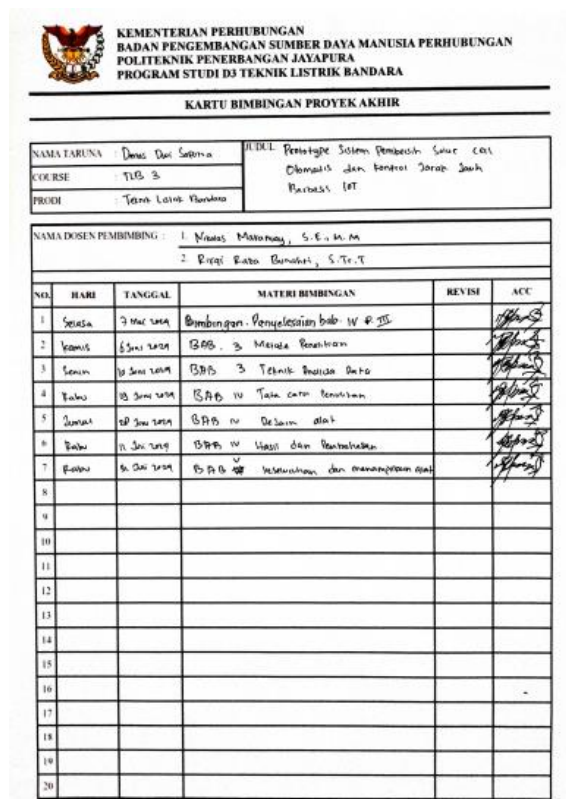 KEMENTERIAN PERHUBUNGAN
BADAN PENGEMBANGAN SUMBER DAYA MANUSIA PERHUBUNGAN
POLITEKNIK PENERBANGAN JAYAPURA
PROGRAM STUDI D3 TEKNIK LISTRIK BANDARA
KARTU BIMBINGAN PROYEK AKHIR
NAMA TARUNA : Dimas Dwi
COURSE : TLB 3
PRODI : Teknik Listrik Bandara
JUDUL Prototype Sistem Pembersih Solar cell
Otomatis dan Kontrol Jarak Jauh
Berbasis IOT
NAMA DOSEN PEMBIMBING : 1. S.E., M.M
2. S.Tr.T
NO. HARI TANGGAL MATERI BIMBINGAN REVISI ACC
1 Selasa 7 Mei 2024 Bimbingan. Penyelesaian bab
2 Kamis 6 Juni 2024 BAB. 3 Metode Penelitian
3 Senin 10 Juni 2024 BAB 3 Teknik Data
4 Rabu Juni 2024 BAB IV Tata cara Penelitian
5 Jumat Juni 2024 BAB IV Desain alat
6 Rabu 2024 BAB IV Hasil dan Pembahasan
7 Rabu 2024 BAB V dan alat
8
9
10
11
12
13
14
15
16
17
18
19
20